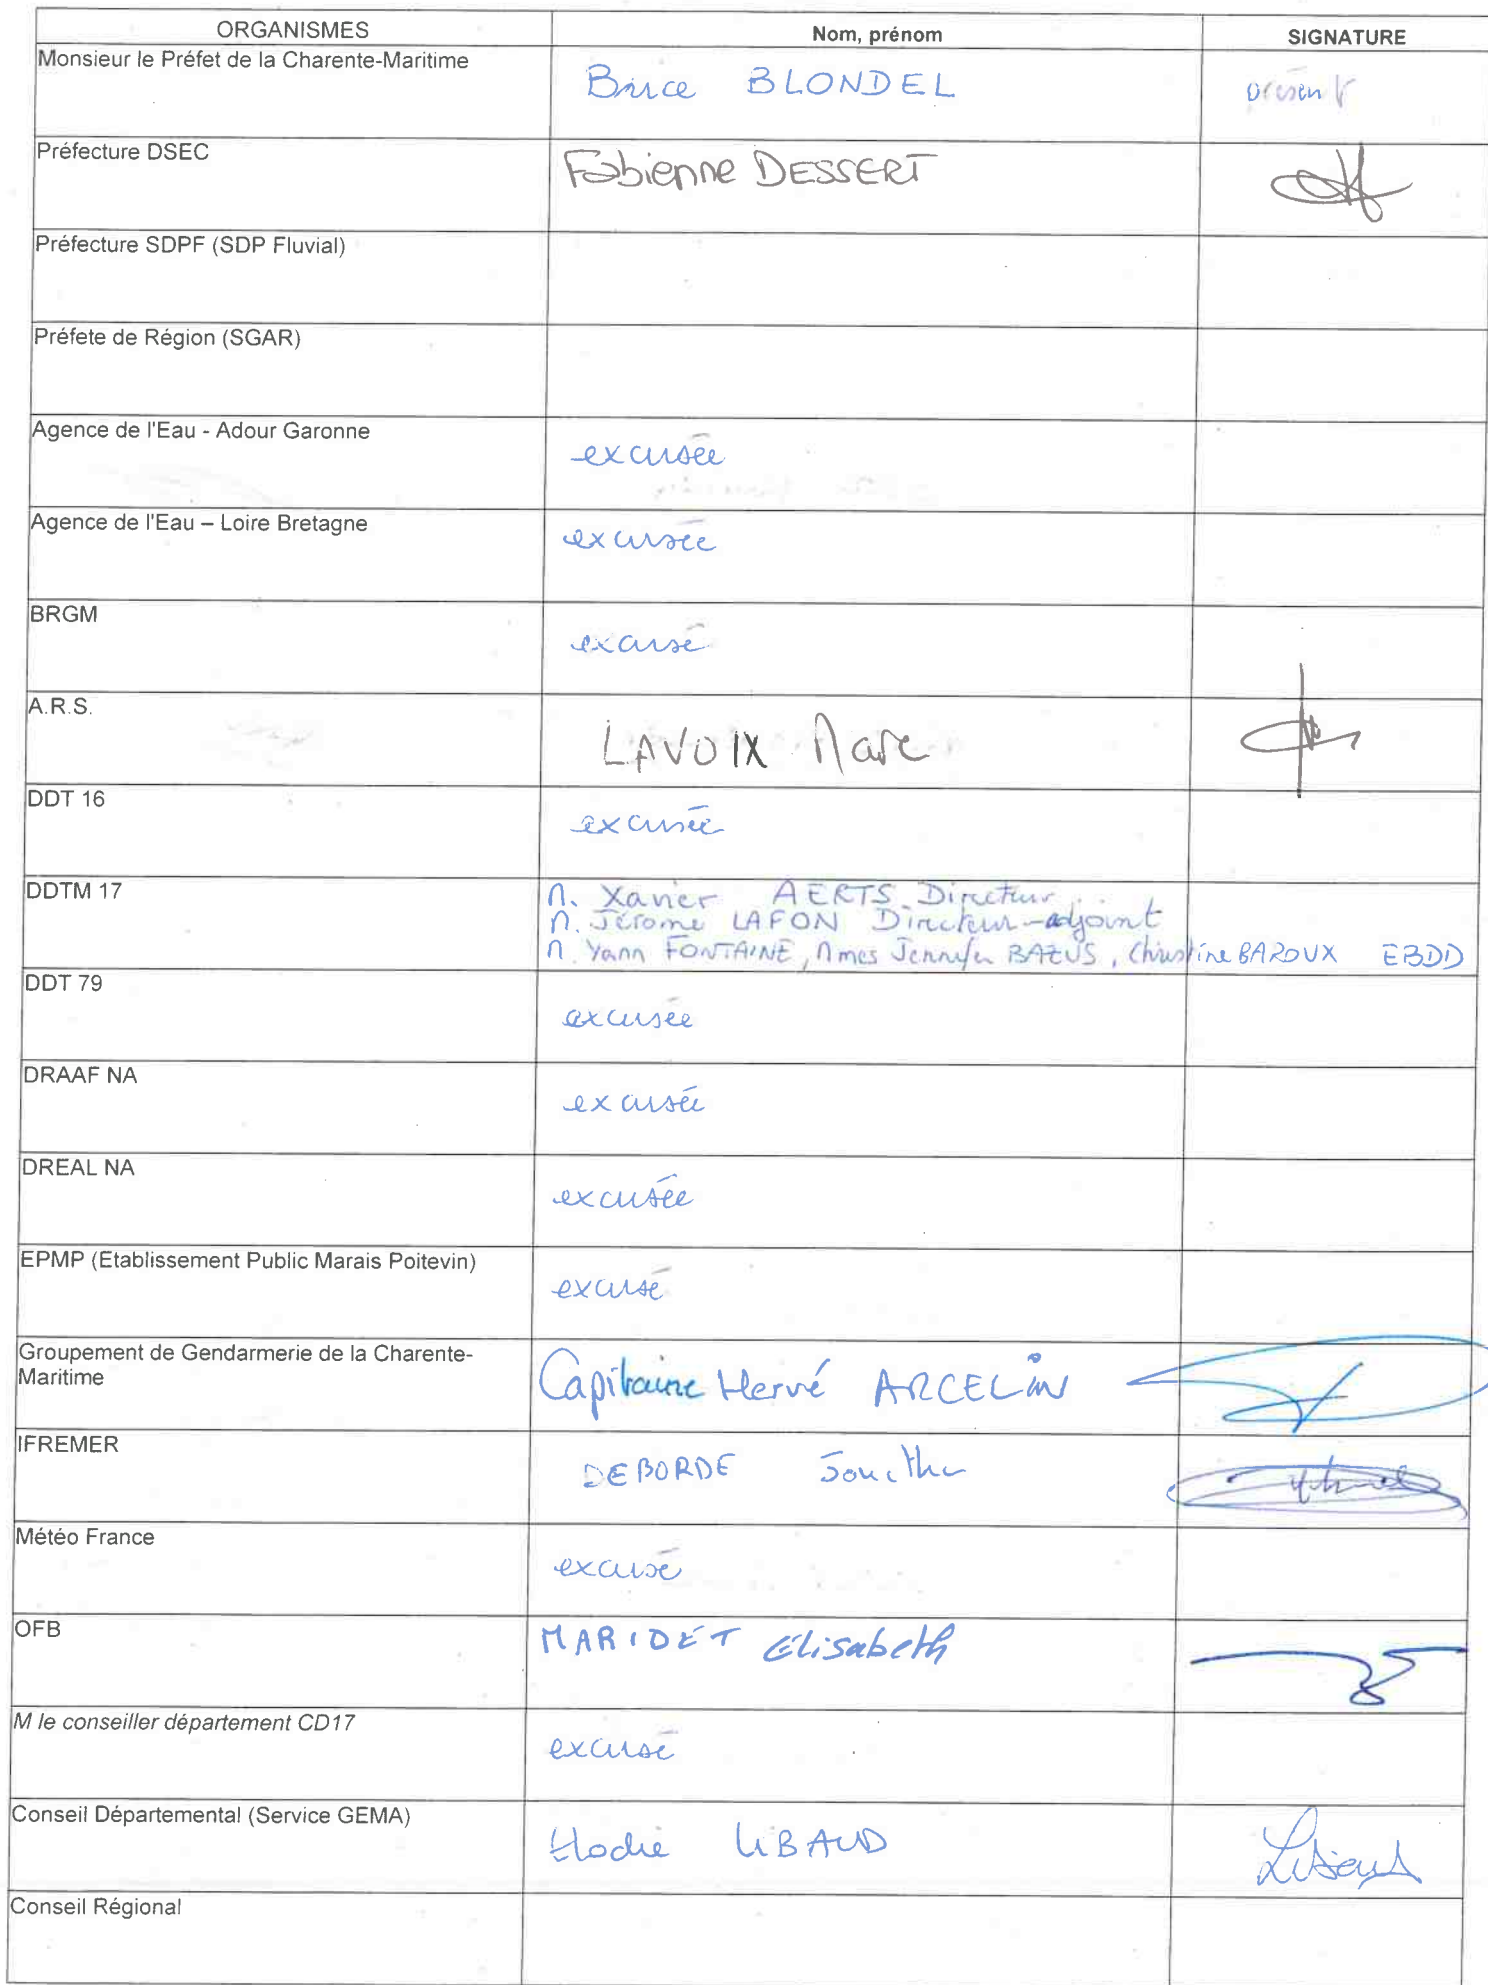 ORGANISMES Nom, prénom SIGNATURE
Monsieur le Préfet de la Charente-Maritime Brice BLONDEL présent
Préfecture DSEC Fabienne DESSERT
Préfecture SDPF (SDP Fluvial)
Préfete de Région (SGAR)
Agence de l'Eau - Adour Garonne excusée
Agence de l'Eau – Loire Bretagne excusée
BRGM excusé
A.R.S. LAVOIX Marc
DDT 16 excusée
DDTM 17 M. Xavier AERTS Directeur
M. Jérome LAFON Directeur-adjoint
M. Yann FONTAINE, Mmes Jennifer BAZUS, Christine BAROUX EBDD
DDT 79 excusée
DRAAF NA excusée
DREAL NA excusée
EPMP (Etablissement Public Marais Poitevin) excusé
Groupement de Gendarmerie de la Charente-
Maritime Capitaine Hervé ARCELIN
IFREMER DEBORDE
Météo France excusé
OFB MARIDET Elisabeth
M le conseiller département CD17 excusé
Conseil Départemental (Service GEMA) Elodie LIBAUD
Conseil Régional